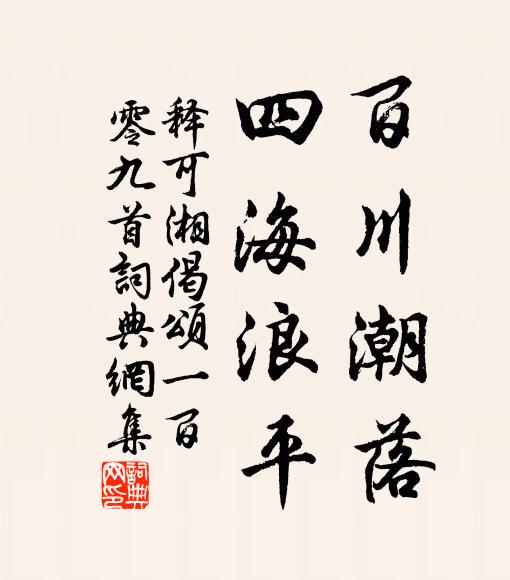 百川潮落
四海浪平
释可湘偈頌一百
零九首詞典網集
詞典
网印